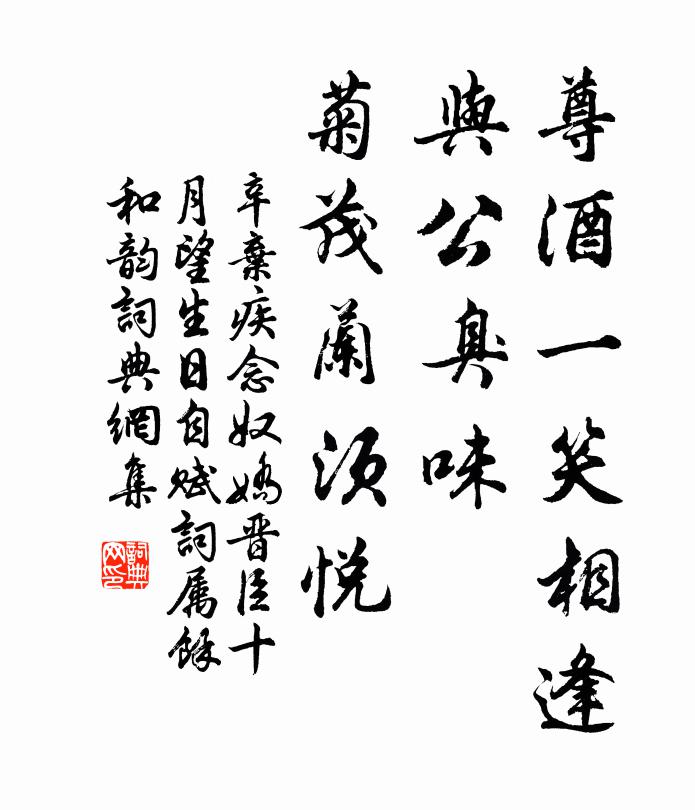 尊酒一笑相逢
與公臭味
菊茂蘭須悅
辛棄疾念奴嬌晋臣十
月望生日自賦詞属餘
和韵詞典網集
詞典网印